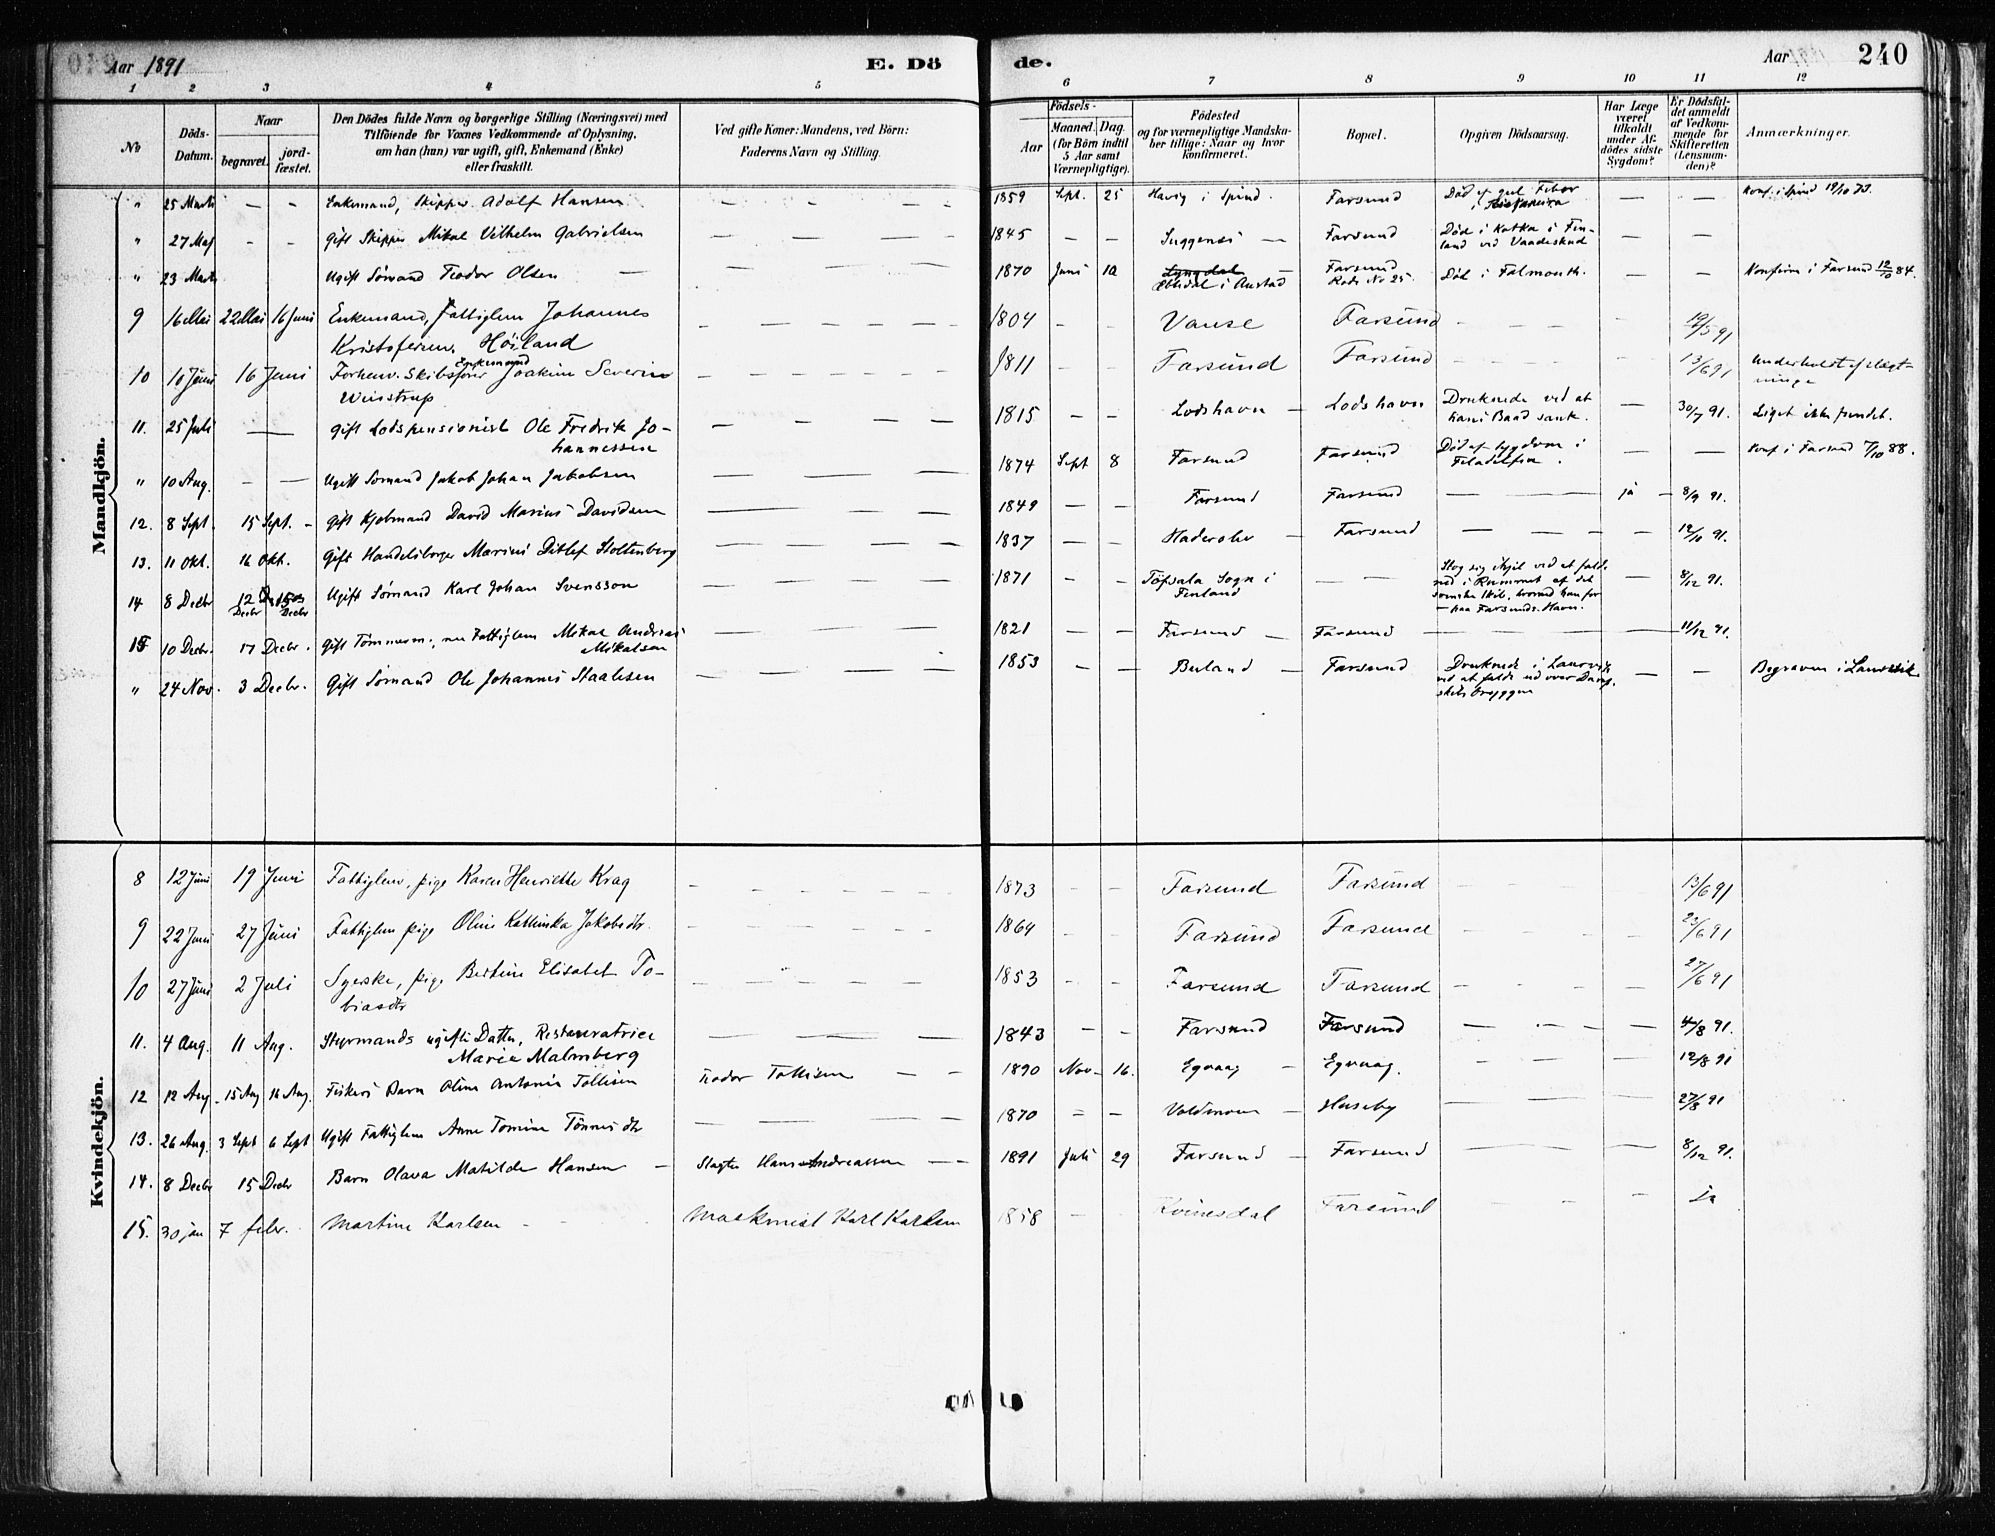 Aar 1891
E. Dö
de.
Aar
240
1 2 3 4 5 6 7 8 9 10 11 12
No
Döds-Datum.
Naar
begravet.
jord-fæstet.
Den Dödes fulde Navn og borgerlige Stilling (Næringsvei) med
Tilföiende for Voxnes Vedkommende af Oplysning,
om han (hun) var ugift, gift, Enkemand (Enke)
eller fraskilt.
Ved gifte Koner: Mandens, ved Börn:
Faderens Navn og Stilling.
Födsels-
Aar
Maaned. Dag.
(for Börn indtil
5 Aar samt
Værnepligtige).
Födested
og for værnepligtige Mandska-
ber tillige: Naar og hvor
konfirmeret.
Bopæl.
Opgiven Dödsaarsag.
Har Læge
været
tilkaldt
under Af-
dödes sidste
Sygdom?
Er Dödsfal-
det anmeldt
af Vedkom-
mende for
Skifteretten
(Lensman-
den)?
Anmærkninger.
Mandkjön.
" 25 Marts — — Enkemand, Skipper Adolf Hansen — 1859 Sept. 25 Havig i Spind. Farsund Död af gul Feber i — — Konf. i Spind 19/10 73.
" 27 Maj - - Gift Skipper Mikal Vilhelm Gabrielsen — 1845 — — Farsund Död i Kotka i Fin-
land ved Vaadeskud — —
" 23 Marts Ugift Sömand Teodor Olsen — 1870 Juni 10 Lyngdal
i Austad Farsund
Rode No 25. Död i Falmouth. — — Konfirm i Farsund 12/10 84.
9 16 Mai 22 Mai 16 Juni Enkemand, Fattiglem Johannes
Kristofersen Höiland — 1804 - - Vanse Farsund - - 19/5 91
10 10 Juni 16 Juni Forhenv. Skibsförer Enkemand Joakim Severin
Winstrup — 1811 Farsund Farsund - - 13/6 91 Underholdt af Slægt-
ninge
11. 25 Juli — Gift Lodspensionist Ole Fredrik Jo-
hannessen — 1815 — — Lodshavn — Lodshavn Druknede ved at
hans Baad sank. — 30/7 91. Liget ikke fundet.
" 10 Aug. - — Ugift Sömand Jakob Johan Jakobsen — 1874 Sept 8 Farsund Farsund Död af Sygdom i
Filadelfia. — — Konf i Farsund 7/10 88.
12. 8 Sept. 15 Sept. - Gift Kjöbmand David Marius Davidsen — 1849 — — Farsund Farsund — ja 8/9 91.
13. 11 Okt. 16 Okt. Gift Handelsborger Marius Ditlef Stoltenberg — 1837 — — Haderslev — Farsund — - 12/10 91.
14 8 Decbr 12
Decbr
Decbr Ugift Sömand Karl Johan Svensson — 1871 - - Töfsala Sogn i
Finland — — Slog sig ihjel ved at falde
ned i Rummet af det
svenske Skib, hvormed han for
— paa Farsunds Havn. — 8/12 91.
15 10 Decbr. 17 Decbr. Gift Tömmerm., nu Fattiglem Mikal Andreas
Mikalsen — 1821 — — Farsund — Farsund — 11/12 91.
" 24 Nov. 3 Decbr. Gift Sömand Ole Johannes Staalesen — 1853 — — Buland — Farsund Druknede i Laurvik
ved at falde ud over Damp-
skibs Bryggen — — Begraven i Laurvik
Kvindekjön.
8 12 Juni 19 Juni Fattiglem, pige Karen Henriette Krag - 1873 - - Farsund Farsund - - 13/6 91
9 22 Juni 27 Juni Fattiglem pige Oline Kathinka Jakobsdtr. - 1864 - - Farsund Farsund - - 23/6 91
10 27 Juni 2 Juli Syerske, pige Bertine Elisabet To-
biasdtr - 1853 - - Farsund Farsund - - 27/6 91
11. 4 Aug. 11 Aug. Styrmands ugifte Datter, Restauratrice
Marie Malmberg — 1843 — - Farsund Farsund — 4/8 91.
12 12 Aug. 15 Aug 16 Aug. Fiskers Barn Oline Antonie Tollisen Teodor Tollisen — 1890 Nov - 16. Egvaag — Egvaag. — 12/8 91
13. 26 Aug. 3 Sept 6 Sept Ugift Fattiglem Anne Tomine Tönnesdtr — 1870 = - Voldmoen — Huseby — 27/8 91
14. 8 Decbr 15 Decbr Barn Olava Matilde Hansen — Slagter Hans Andreassen — 1891 Juli 29 Farsund — Farsund — 8/12 91.
15. 30 jan 7 febr. Martine Karlsen - Maskinist Karl Karlsen 1858 - - Kvinesdal Farsund - - Ja